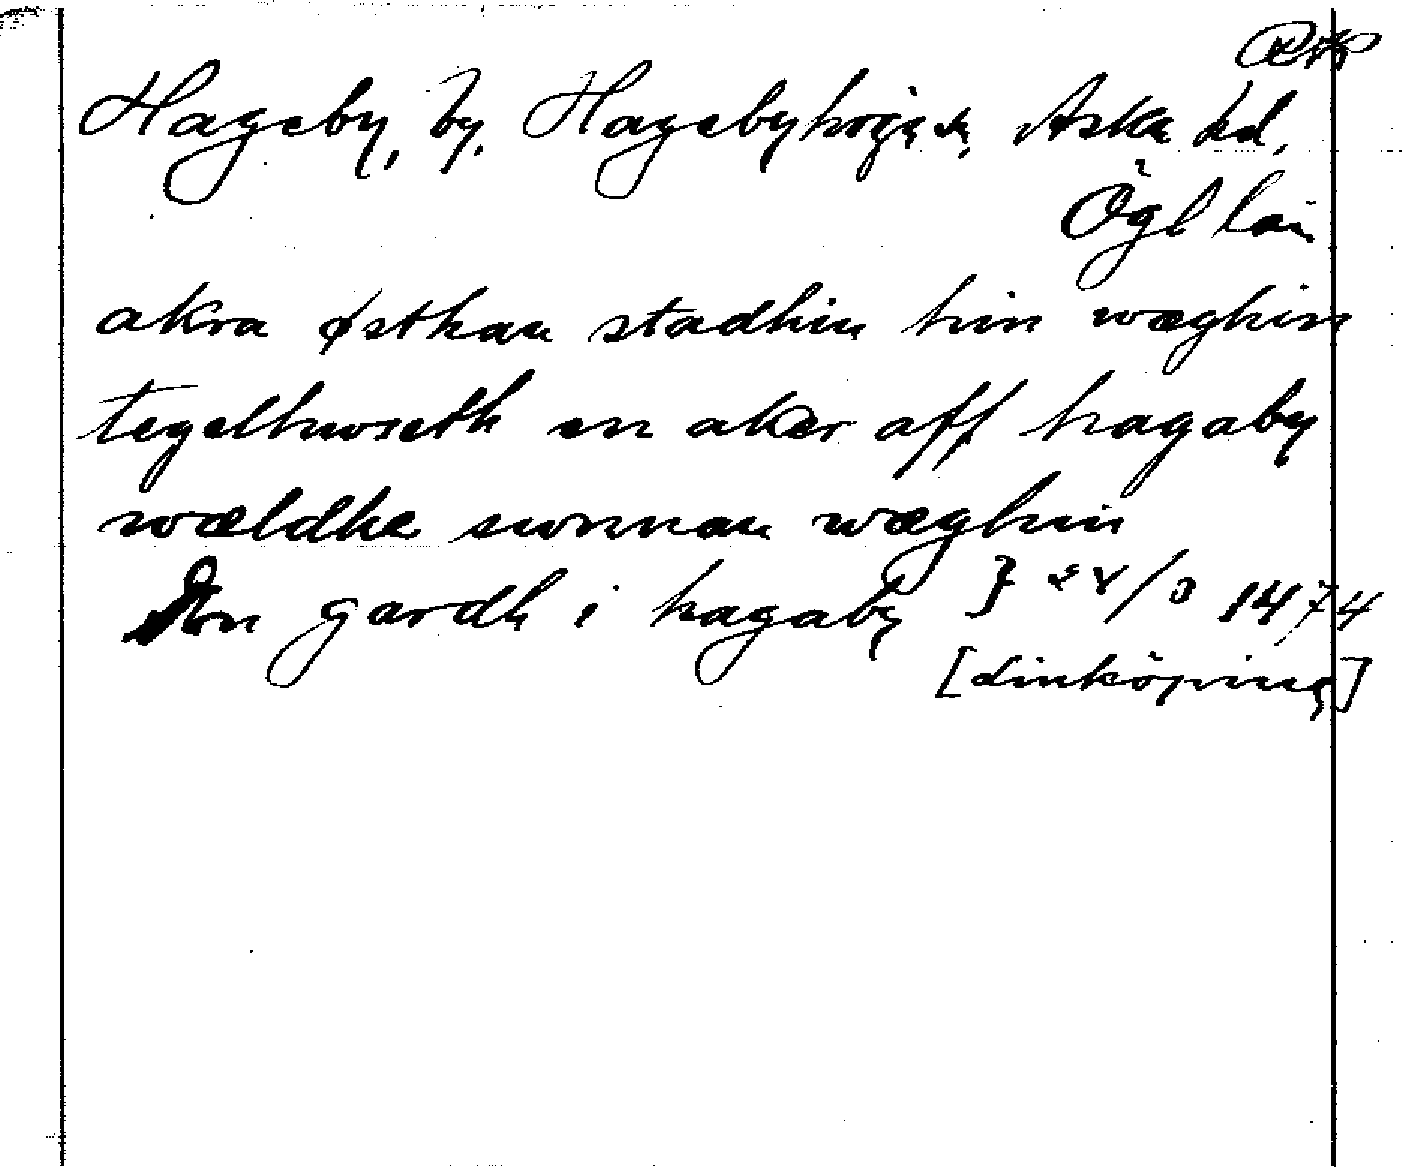 RAP
Hageby, by, Hagebyhöga sn, Aska hd,
Ögl län
akra østhan stadhin hin wæghin
tegelhwseth en aker aff hagaby
wældhe swnnan wæghin
En gardh i hagaby } 22/3 1474
[Linköping]